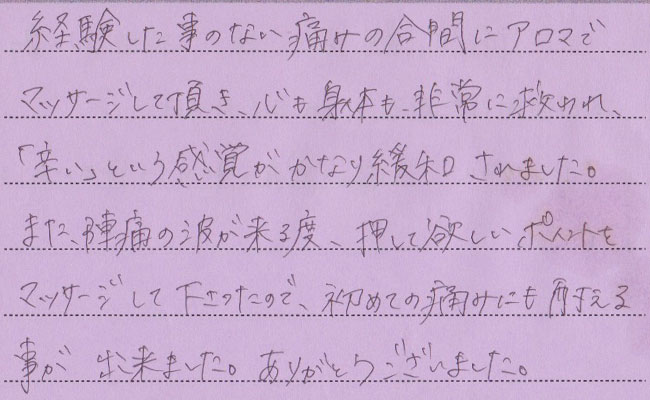 経験した事のない痛みの合間にアロマで
マッサージして頂き、心も身体も、非常に救われ、
「辛い」という感覚がかなり緩和されました。
また、陣痛の波が来る度、押して欲しいポイントを
マッサージして下さったので、初めての痛みにも耐える
事が出来ました。ありがとうございました。